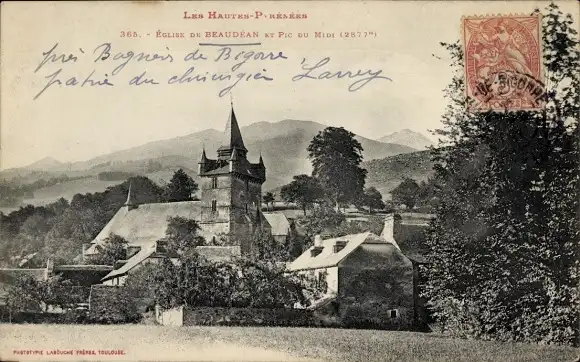 LES HAUTES-PYRÉNÉES
365. - ÉGLISE DE BEAUDÉAN ET PIC DU MIDI (2877m)
près Bagnères de Bigorre
patrie du chirurgien Larrey
PHOTOTYPIE LABOUCHE FRÈRES, TOULOUSE.